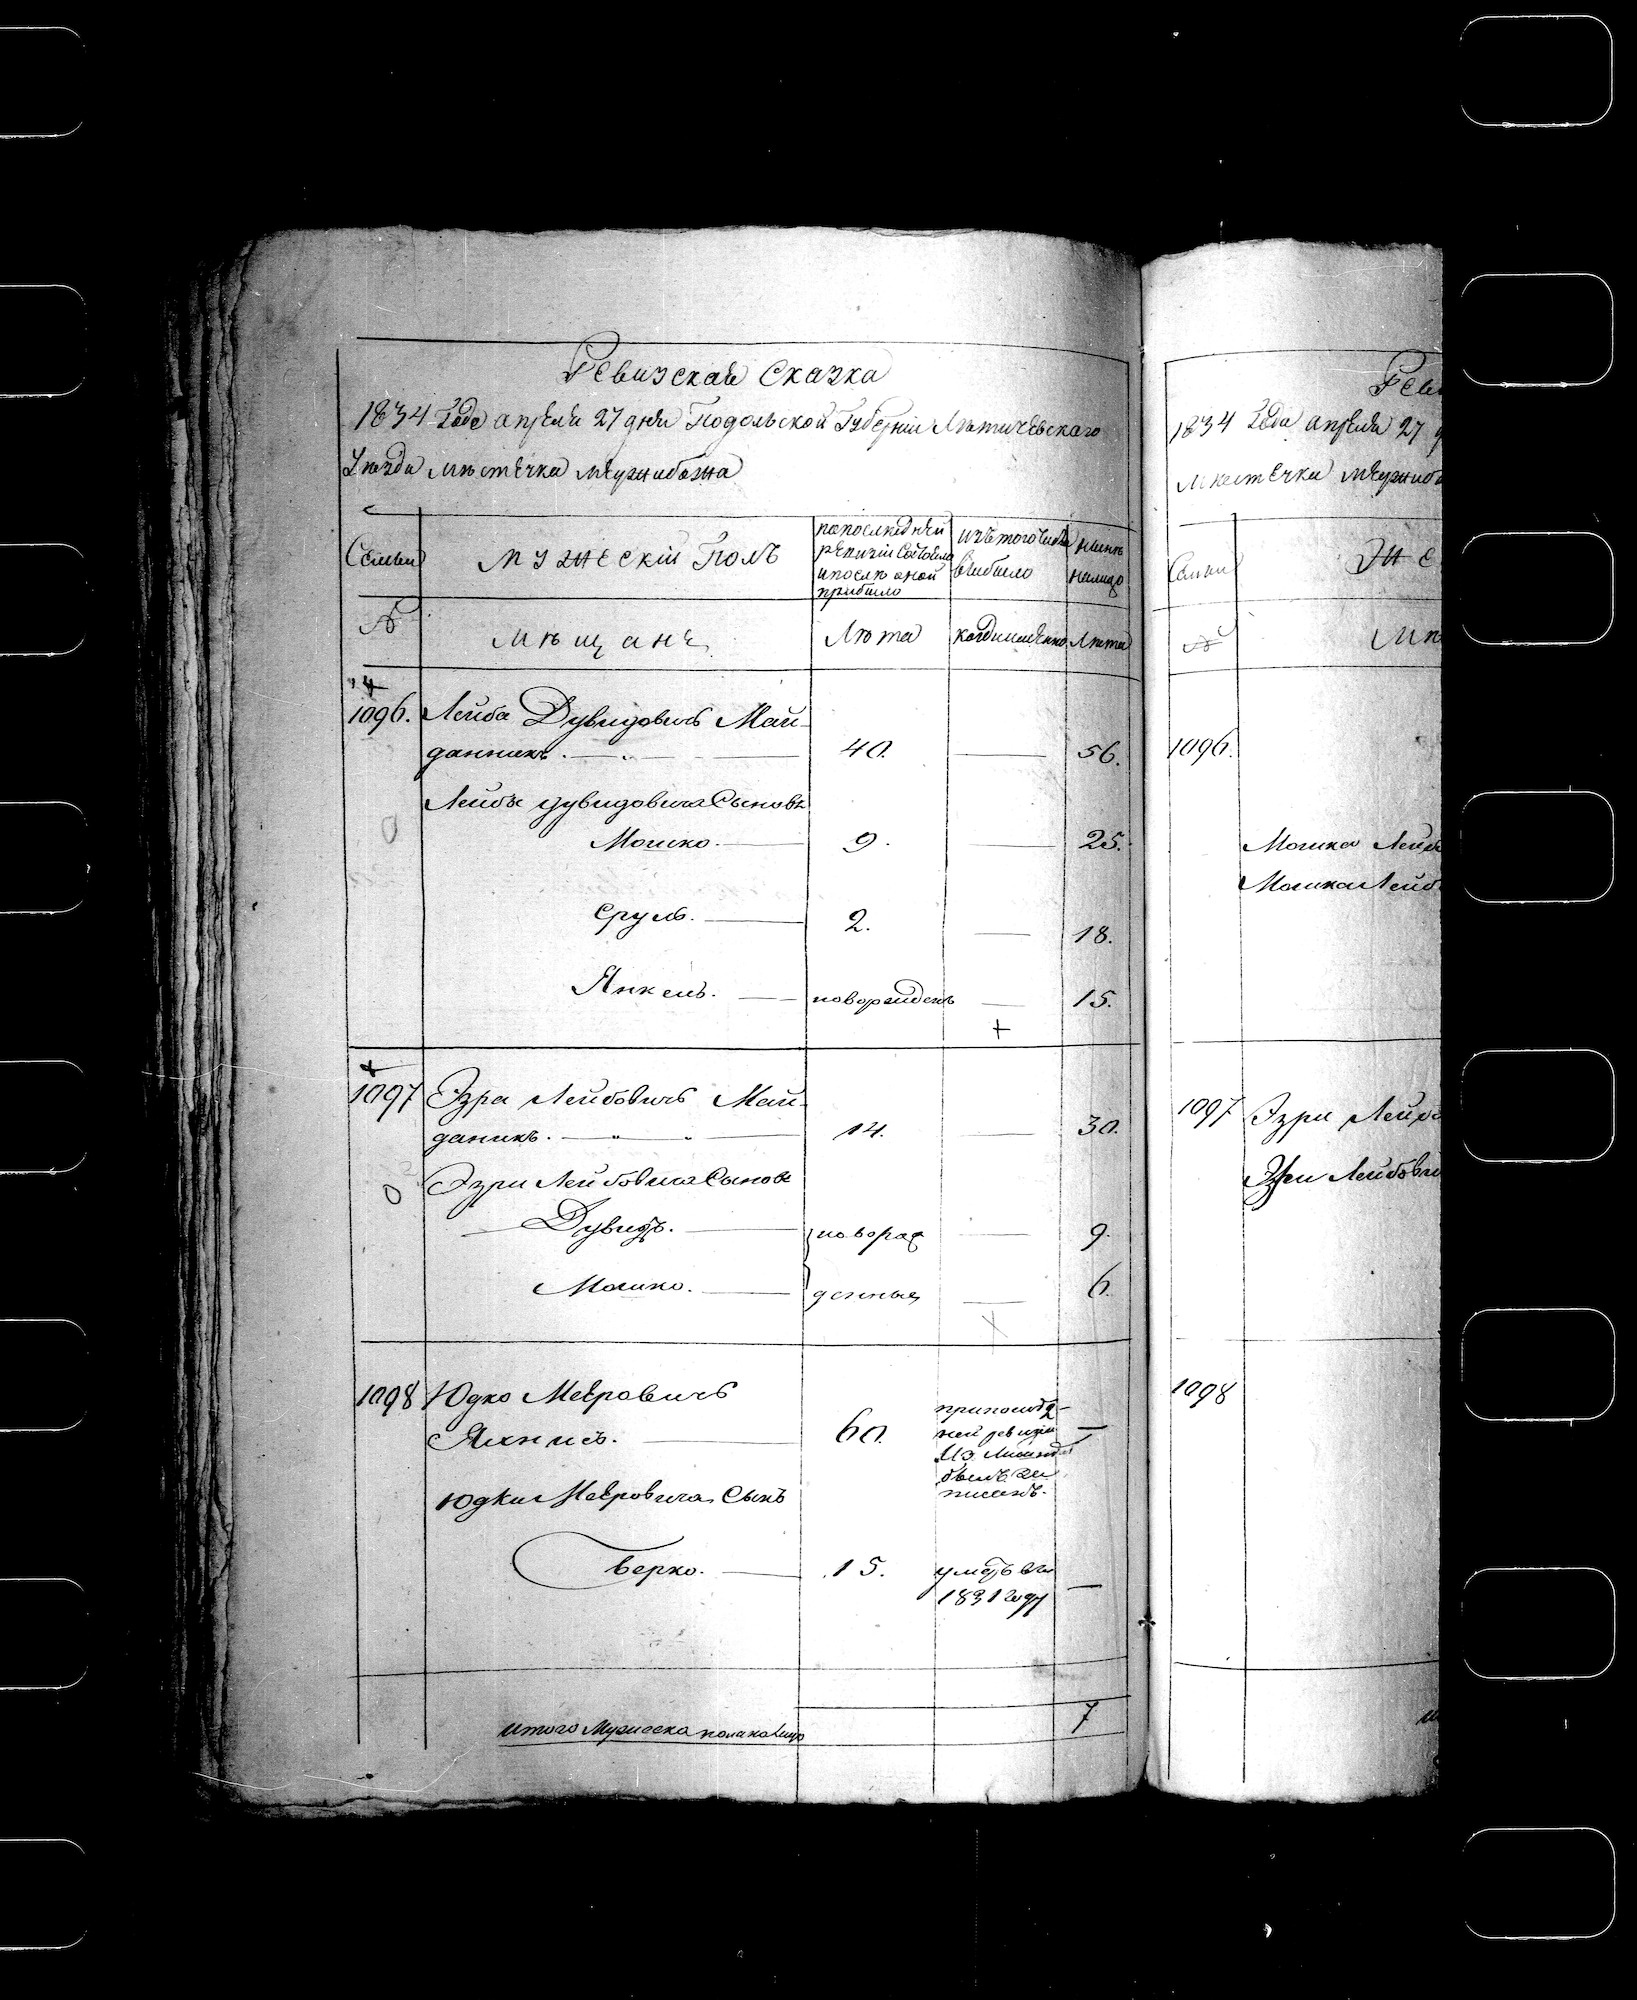 Ревизская Сказка
1834 Года апреля 27 дня Подольской Губерніи Лѣтичевскаго
Уѣзда Мѣстечка Меужибожа
Семьи
мужескій Полъ
попоследней
ревизіи Состояло
ипослѣ оной
прибыло
изътогочисла
выбыло
нынѣ
налицо
№
мѣщане
Лѣта
когдаименно
Лѣта
1096. Лейба Дувидовичъ Май-
данникъ. 40. 56.
Лейбы Дувидовича Сыновъя
Мошко. 9. 25.
Сруль. 2. 18.
Янкель. новорожденъ 15.
1097 Эзра Лейбовичъ Май-
даникъ. 14. 30.
Эзри Лейбовича Сыновья
Дувидъ. новорож 9.
Мошко. денные 6.
1098 Юдко Меровичъ
60.
припослѣд-
ней ревизіи
былъ за
писанъ.
Юдки Меровича Сынъ
Берко. 15. умеръ въ
1831 году
итого Мужеска пола налицо 7
Реви
1834 Года апреля 27 д
мѣстечка Меужибо
Семьи
Же
№
Мѣ
1096.
Мошка Лейбо
Мошка Лейб
1097 Эзри Лейбо
Эзри Лейбови
1098